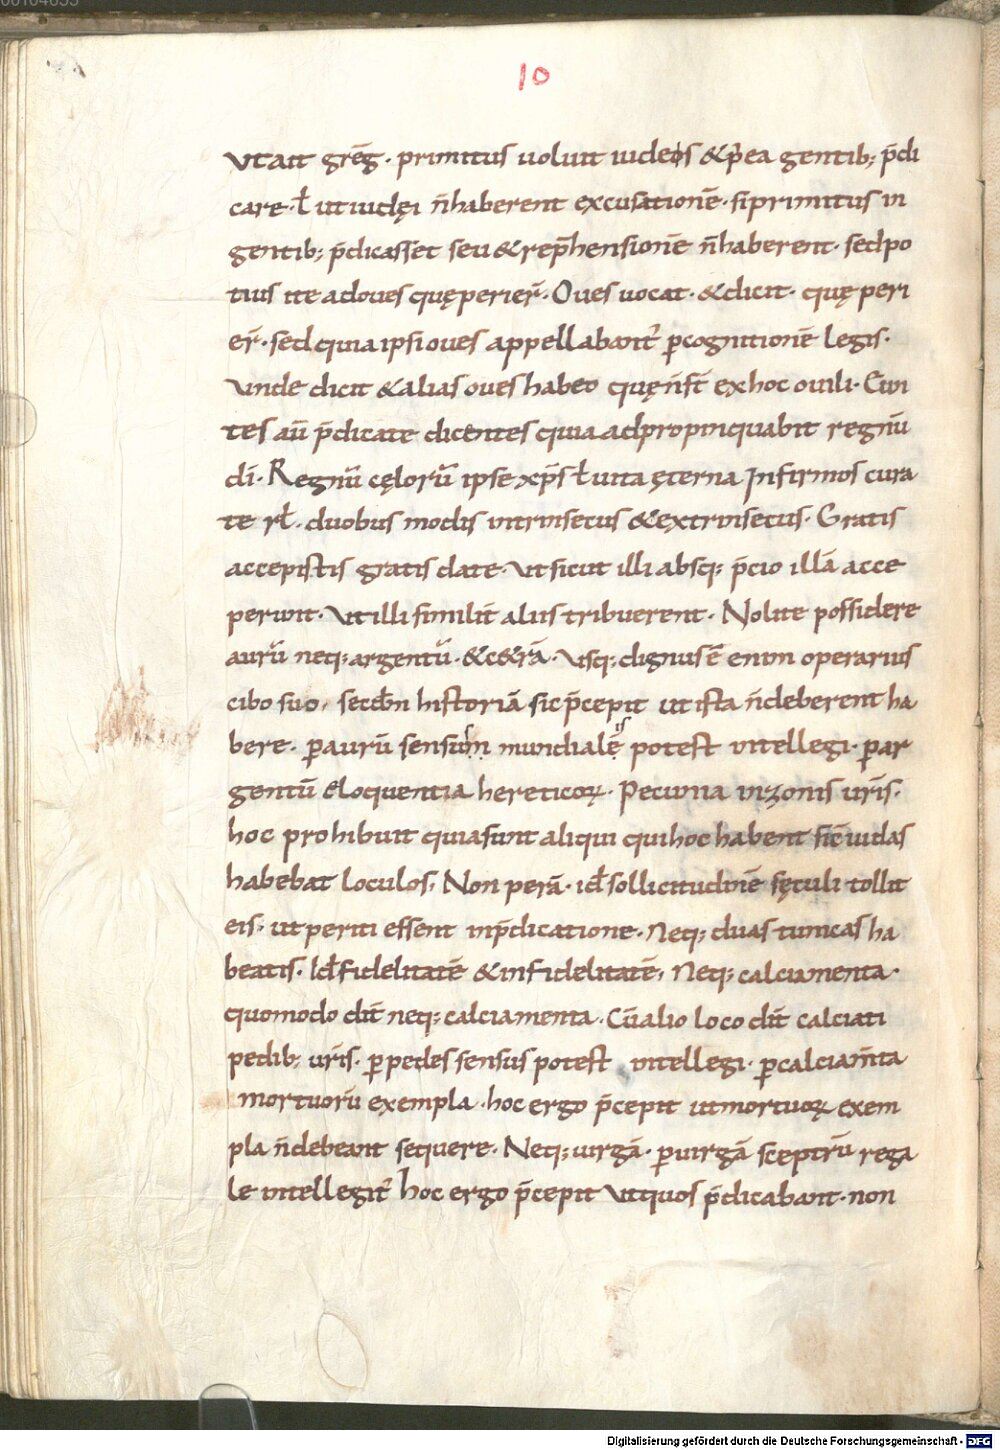 10
vt ait grēg. primitus uoluit iudeos & p̄ea gentib; p̄di
care. ƚ ut iudęi n̄ haberent excusationē. si primitus in
gentib; p̄dicasset seu & rep̄hensionē n̄ haberent. sed po
tius ite ad oues quę perier̄. Oues uocat. & dicit. quę peri
er̄. sed quia ipsi oues appellabant᷒ ꝑ cognitionē legis.
Vnde dicit & alias oues habeo quę n̄ st̄ ex hoc ouili. Eun
tes aū p̄dicate dicentes quia adpropinquabit regnū
dī. Regnū cęlorū ipse xp̄s ƚ uita ęterna Infirmos cura
te rƚ. duobus modis intrinsecus & extrinsecus. Gratis
accepistis gratis date. Vt sicut illi absq; p̄cio illā acce
perunt. Vt illi similit̄ aliis tribuerent. Nolite possidere
aurū neq; argentū. & c&rā. Vsq; dignus ē enim operarius
cibo suo. secdn̄ historiā sic p̄cepit ut ista n̄ deberent ha
bere. ꝑ aurū sensum mundialē potest intellegi. ꝑ ar
gentū eloquentia hereticoꝝ. Pecunia in zonis ur̄is.
hoc prohibuit quia sunt aliqui qui hoc habent sic̄ iudas
habebat loculos. Non perā. id̄ sollicitudinē sęculi tollit
eis. ut periti essent in p̄dicatione. Neq; duas tunicas ha
beatis. Id̄ fidelitatē & infidelitatē. Neq; calciamenta.
quomodo dic̄ neq; calciamenta. Cū alio loco dic̄ calciati
pedib; ur̄is. ꝑ pedes sensus potest intellegi. ꝑ calciam̄ta
mortuorū exempla. hoc ergo p̄cepit ut mortuoꝝ exem
pla n̄ debeant sequere. Neq; uirgā. ꝑ uirgā sceptrū rega
le intellegit᷒ hoc ergo p̄cepit Vt quos p̄dicabant. non
Digitalisierung gefördert durch die Deutsche Forschungsgemeinschaft - DFG